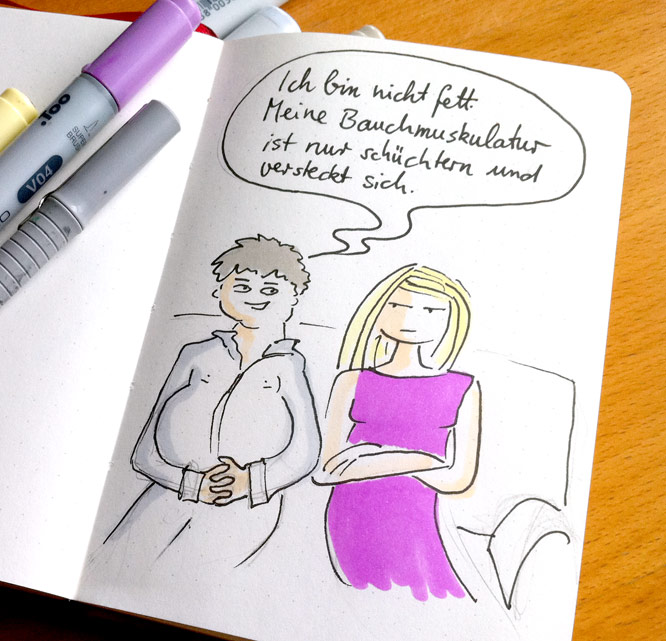 Ich bin nicht fett.
Meine Bauchmuskulatur
ist nur schüchtern und
versteckt sich.
.100
V04